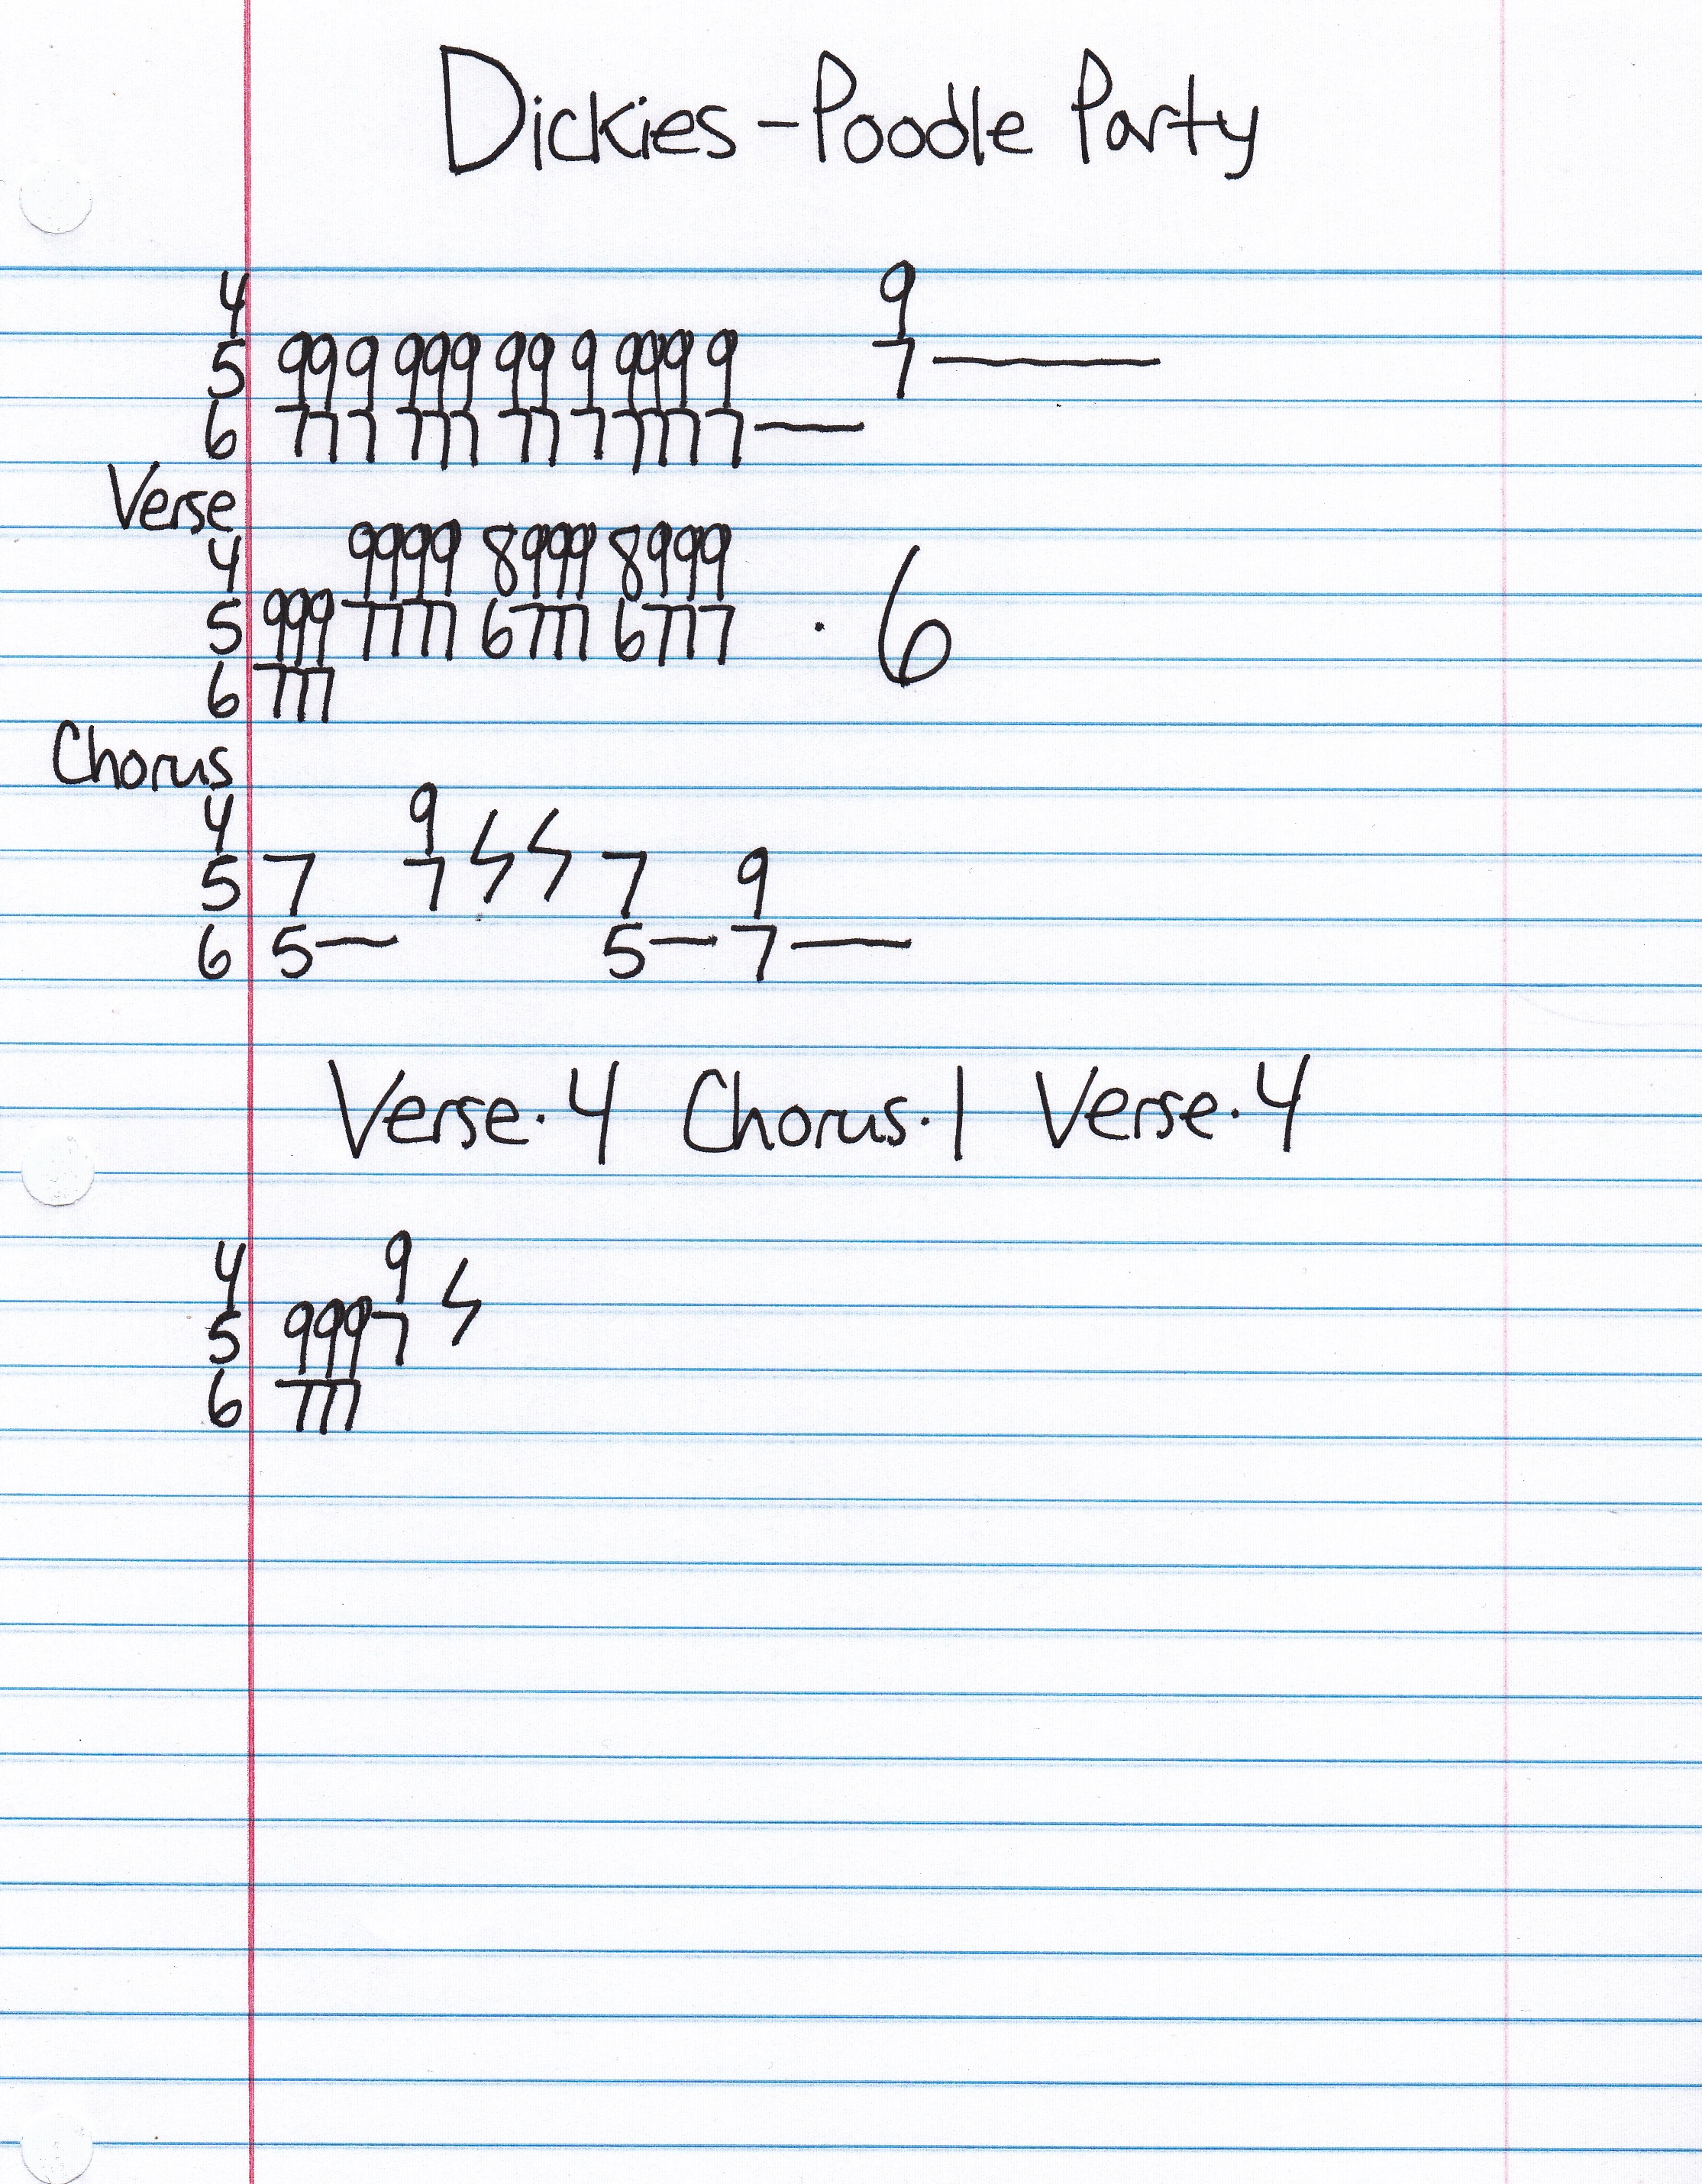 Dickies - Poodle Party
4 9
5 99 9 999 99 9 999 9 7 ———
6 77 7 777 77 7 777 7 —
Verse
4 9999 8999 8999
5 999 7777 6777 6777 · 6
6 777
Chorus
4 9
5 7 7 ϟ ϟ 7 9
6 5 — 5 — 7 —
Verse · 4 Chorus · 1 Verse · 4
4 9
5 999 7 ϟ
6 777